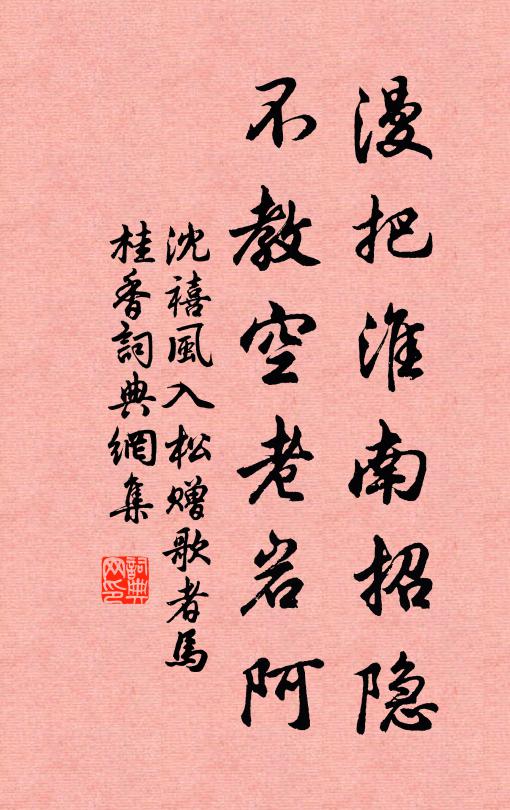 漫把淮南招隐
不教空老岩阿
沈禧風入松赠歌者馬
桂香詞典網集
詞典網印